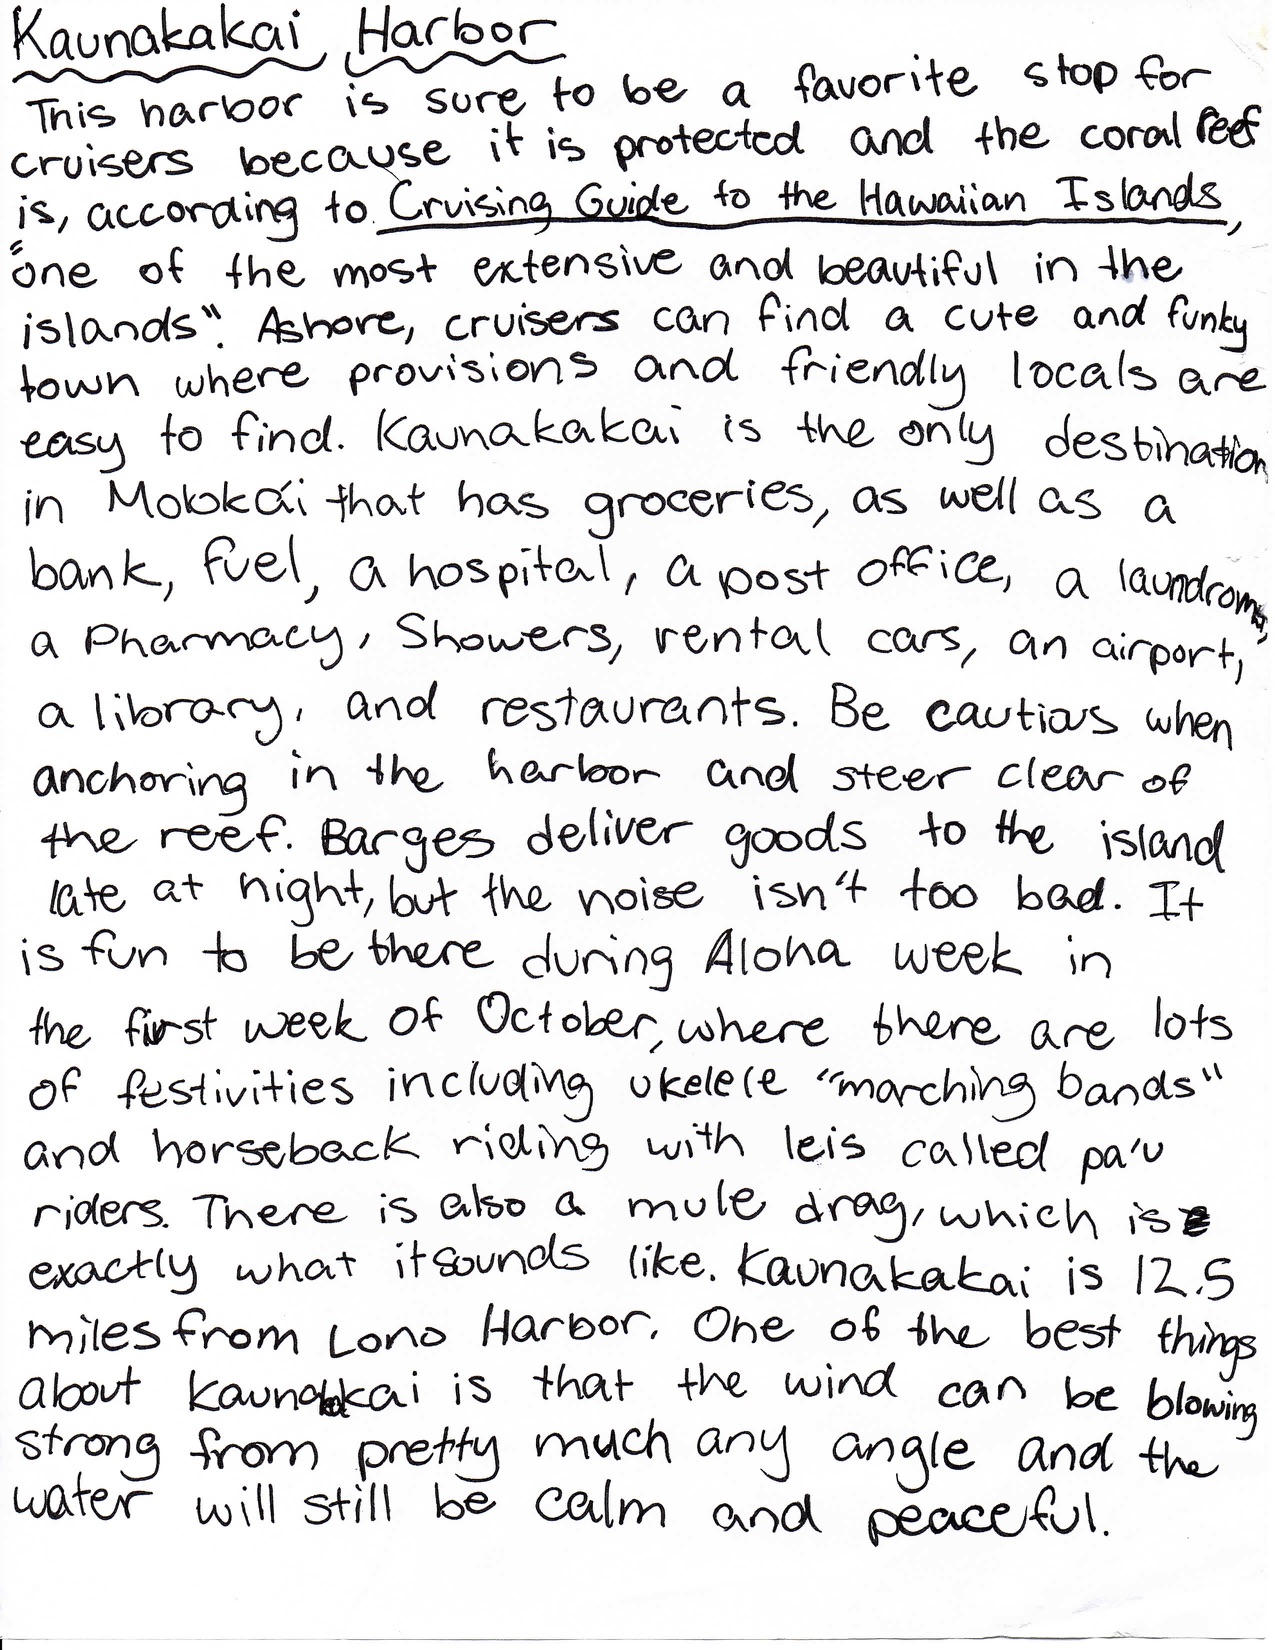 Kaunakakai Harbor
This harbor is sure to be a favorite stop for
cruisers because it is protected and the coral reef
is, according to Cruising Guide to the Hawaiian Islands,
"one of the most extensive and beautiful in the
islands". Ashore, cruisers can find a cute and funky
town where provisions and friendly locals are
easy to find. Kaunakakai is the only destination
in Molokái that has groceries, as well as a
bank, fuel, a hospital, a post office, a laundromat,
a Pharmacy, Showers, rental cars, an airport,
a library, and restaurants. Be cautios when
anchoring in the harbor and steer clear of
the reef. Barges deliver goods to the island
late at night, but the noise isn't too bad. It
is fun to be there during Aloha week in
the first week of October, where there are lots
of festivities including ukelele "marching bands"
and horseback riding with leis called pa'u
riders. There is also a mule drag, which is
exactly what it sounds like. Kaunakakai is 12.5
miles from Lono Harbor. One of the best things
about Kaunakakai is that the wind can be blowing
strong from pretty much any angle and the
water will still be calm and peaceful.